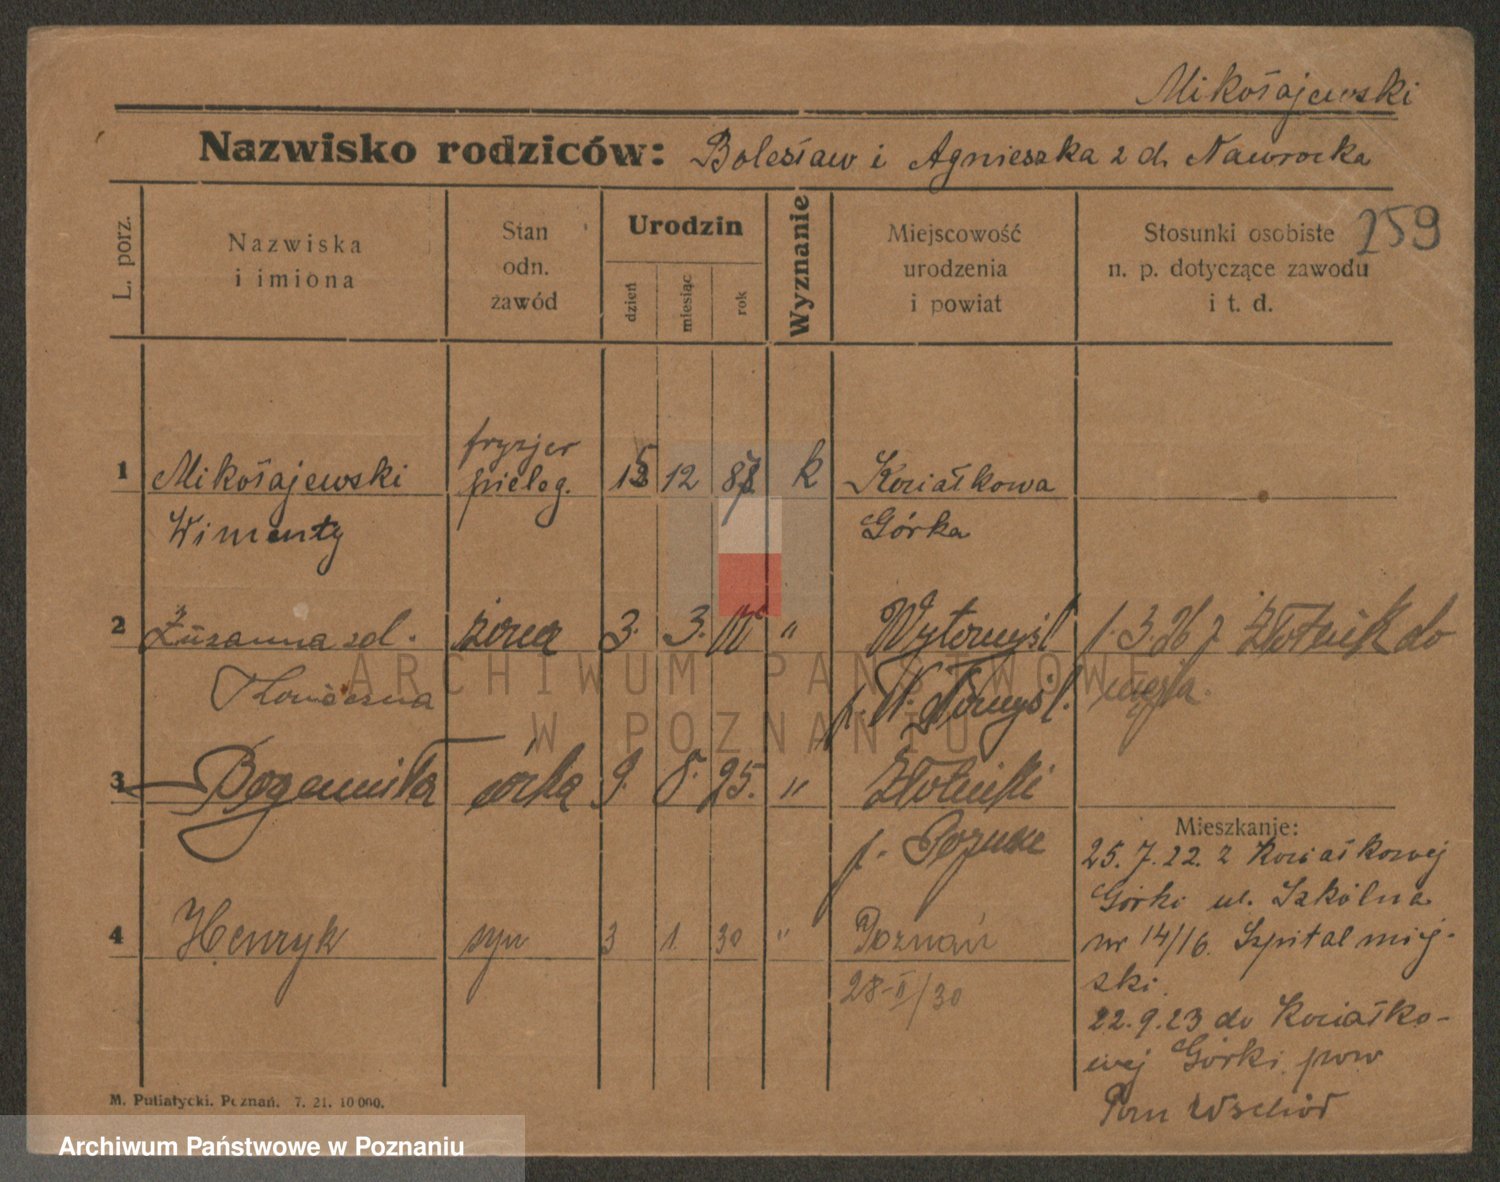 Mikołajewski
Nazwisko rodziców: Bolesław i Agnieszka z d. Nawrocka
259
L. porz.
Nazwiska
i imiona
Stan
odn.
zawód
Urodzin
dzień
miesiąc
rok
Wyznanie
Miejscowość
urodzenia
i powiat
Stosunki osobiste
n. p. dotyczące zawodu
i t. d.
fryzjer
1 Mikołajewski pielog. 12 k Koziałkowa
Górka
2 Zuzanna żona 3. 3. " Wytomyśl f. 3. 26 z Złotnik do
p. N. Tomyśl.
3 Bogumiła córka 9. 8. 25. " Złotniki
p. Poznań
4 Henryk syn 3 1. 30 " Poznań
28-II/30
Mieszkanie:
25. 7. 22. z Koziałkowej
Górki ul. Szkólna
nr 14/16. Szpital miej-
ski.
22. 9. 23 do Koziałko-
wej Górki pow
Pozn Wschód
M. Putiatycki. Poznań. 7. 21. 10 000.
ARCHIWUM PAŃSTWOWE
W POZNANIU
Archiwum Państwowe w Poznaniu